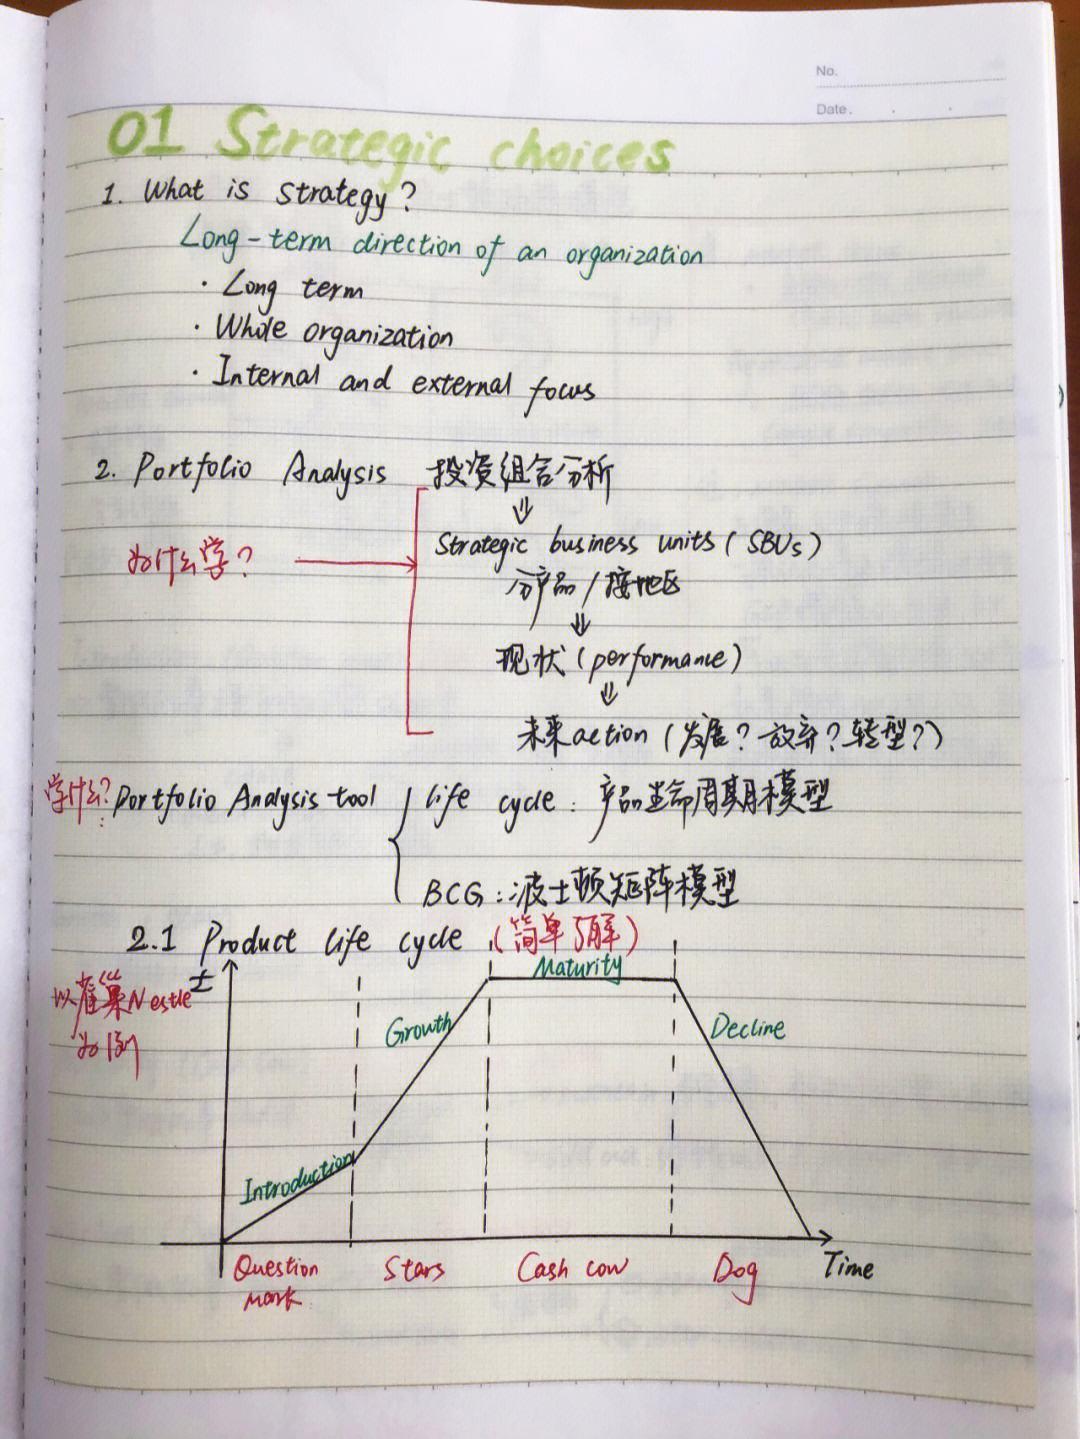 No.
Date.
01 Strategic choices
1. What is strategy?
Long-term direction of an organization
· Long term
· Whole organization
· Internal and external focus
2. Portfolio Analysis 投资组合分析
⇓
Strategic business units (SBUs)
为什么学? →
分产品/按地区
⇓
现状 (performance)
⇓
未来action (发展? 放弃? 转型?)
学什么? Portfolio Analysis tool { life cycle: 产品生命周期模型
BCG: 波士顿矩阵模型
2.1 Product life cycle (简单了解)
以雀巢Nestle
为例
£
Maturity
Growth
Decline
Introduction
Question mark
Stars
Cash cow
Dog
Time